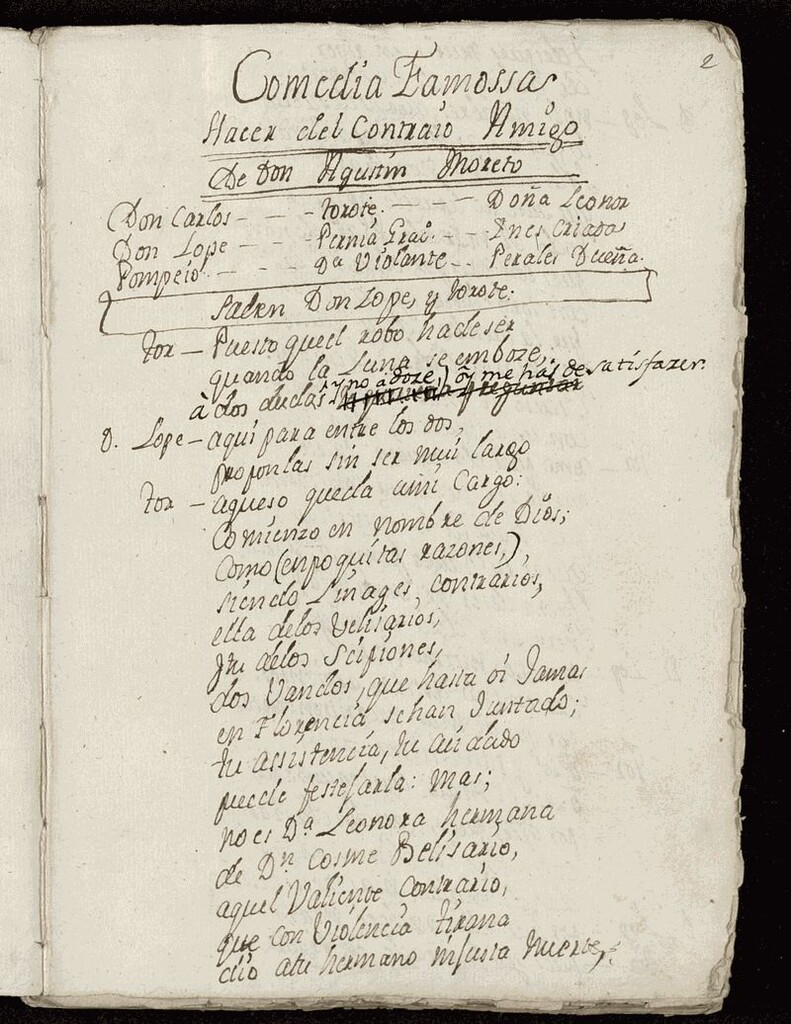 2
Comedia Famossa
Hacer del Contrario Amigo
De Don Agustin Moreto
Don Carlos - - - torote. - - - Doña Leonor
Don Lope - - - Pernia Graº. - - Ines Criada
Pompeio. - - - Dª Violante - - Perales Dueña.
Salen Don Lope, y torote.
tor - Puesto quel robo hadeser
quando la Luna se emboze,
y no adoze,) oy me has de satisfazer.
à dos dudas
D. Lope - aqui para entre los dos,
proponlas sin ser mui largo
tor - aqueso queda ami Cargo:
Comienzo en nombre de Dios;
Como (enpoquitas razones,)
siendo Linages contrarios,
ella delos Velisarios,
y tu delos Scipiones,
dos Vandos, que hasta oi Jamas
en Florencia sehan Juntado;
tu assistencia, tu cuidado
puede festejarla: mas;
no es Dª Leonora hermana
de Dn Cosme Belisario,
aquel Valiente contrario,
que con Violencia tirana
dio atu hermano injusta muerte,